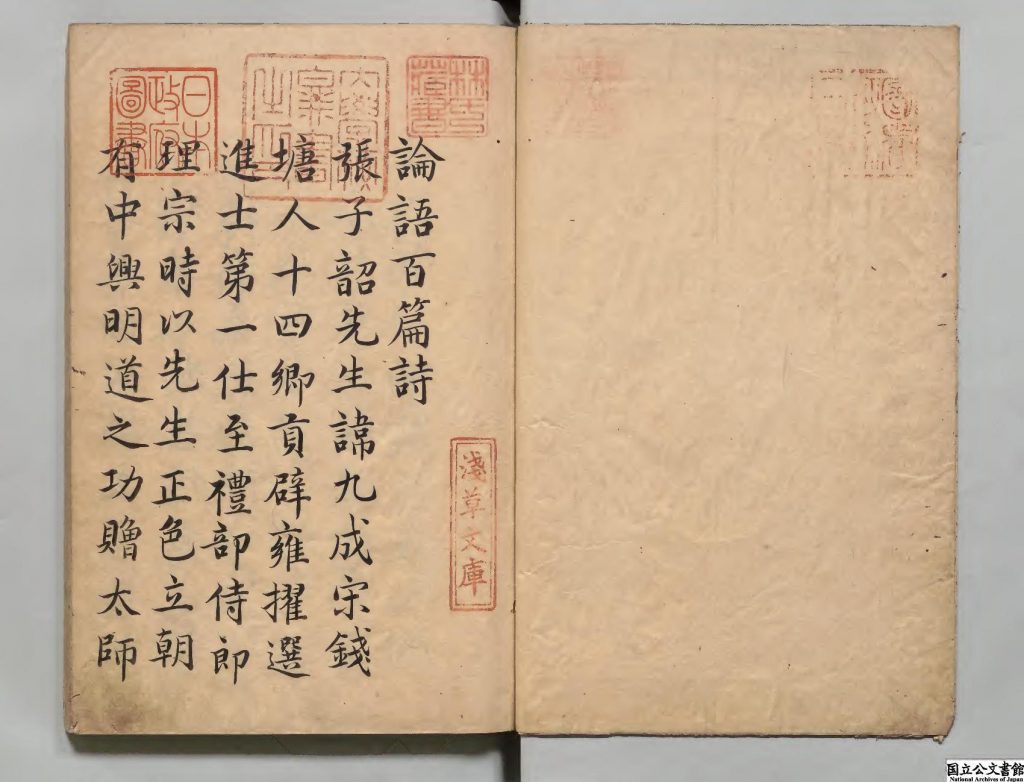 論語百篇詩
張子韶先生諱九成宋錢
塘人十四鄉貢辟雍擢選
進士第一仕至禮部侍郎
理宗時以先生正色立朝
有中興明道之功贈太師
林氏
藏書
日本
政府
圖書
淺草文庫
国立公文書館
National Archives of Japan